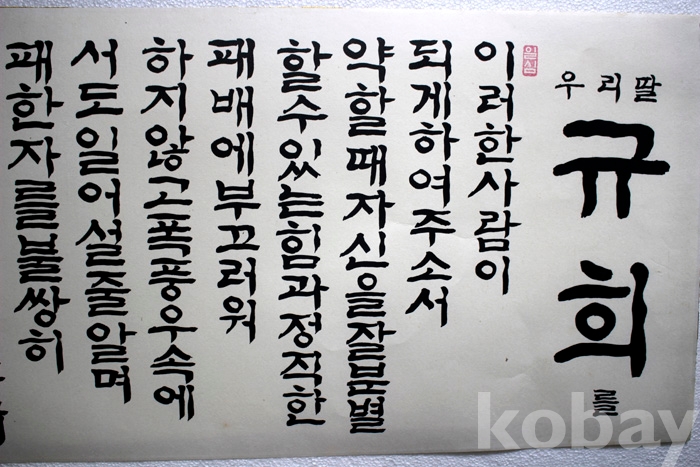 우리딸
규희
를
일심
이러한사람이
되게하여주소서
약할때자신을잘분별
할수있는힘과정직한
패배에부끄러워
하지않고폭풍우속에
서도일어설줄알며
패한자를불쌍히
kobay